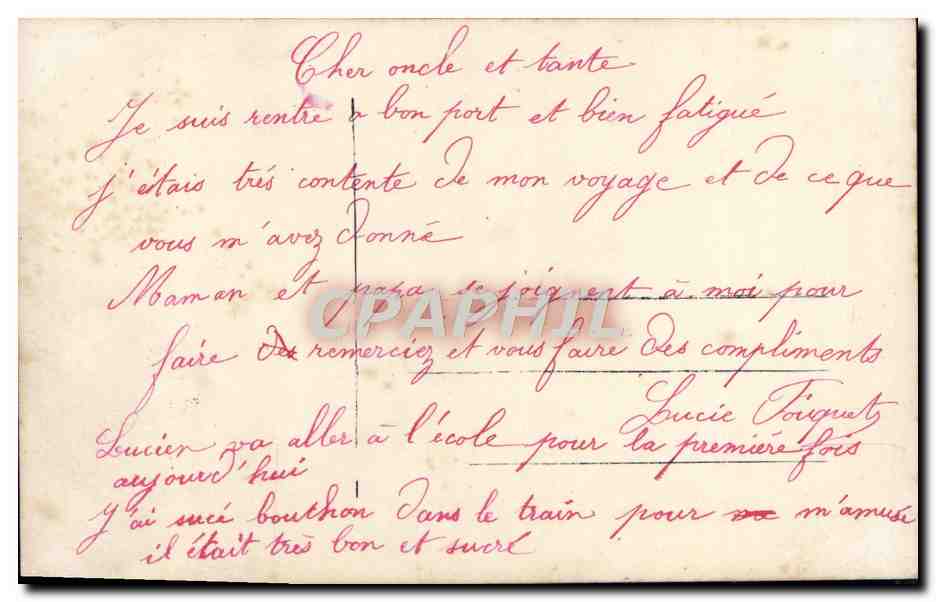 Cher oncle et tante
Je suis rentré a bon port et bien fatigué
j'étais trés contente de mon voyage et de ce que
vous m'avez donné
Maman et papa se joignent à moi pour
faire des remerciez et vous faire des compliments
Lucie Fouquet
Lucien va aller à l'école pour la premiére fois
aujourd'hui
J'ai sucé bouthon dans le train pour m'amusé
il était très bon et sucré
CPAPHIL